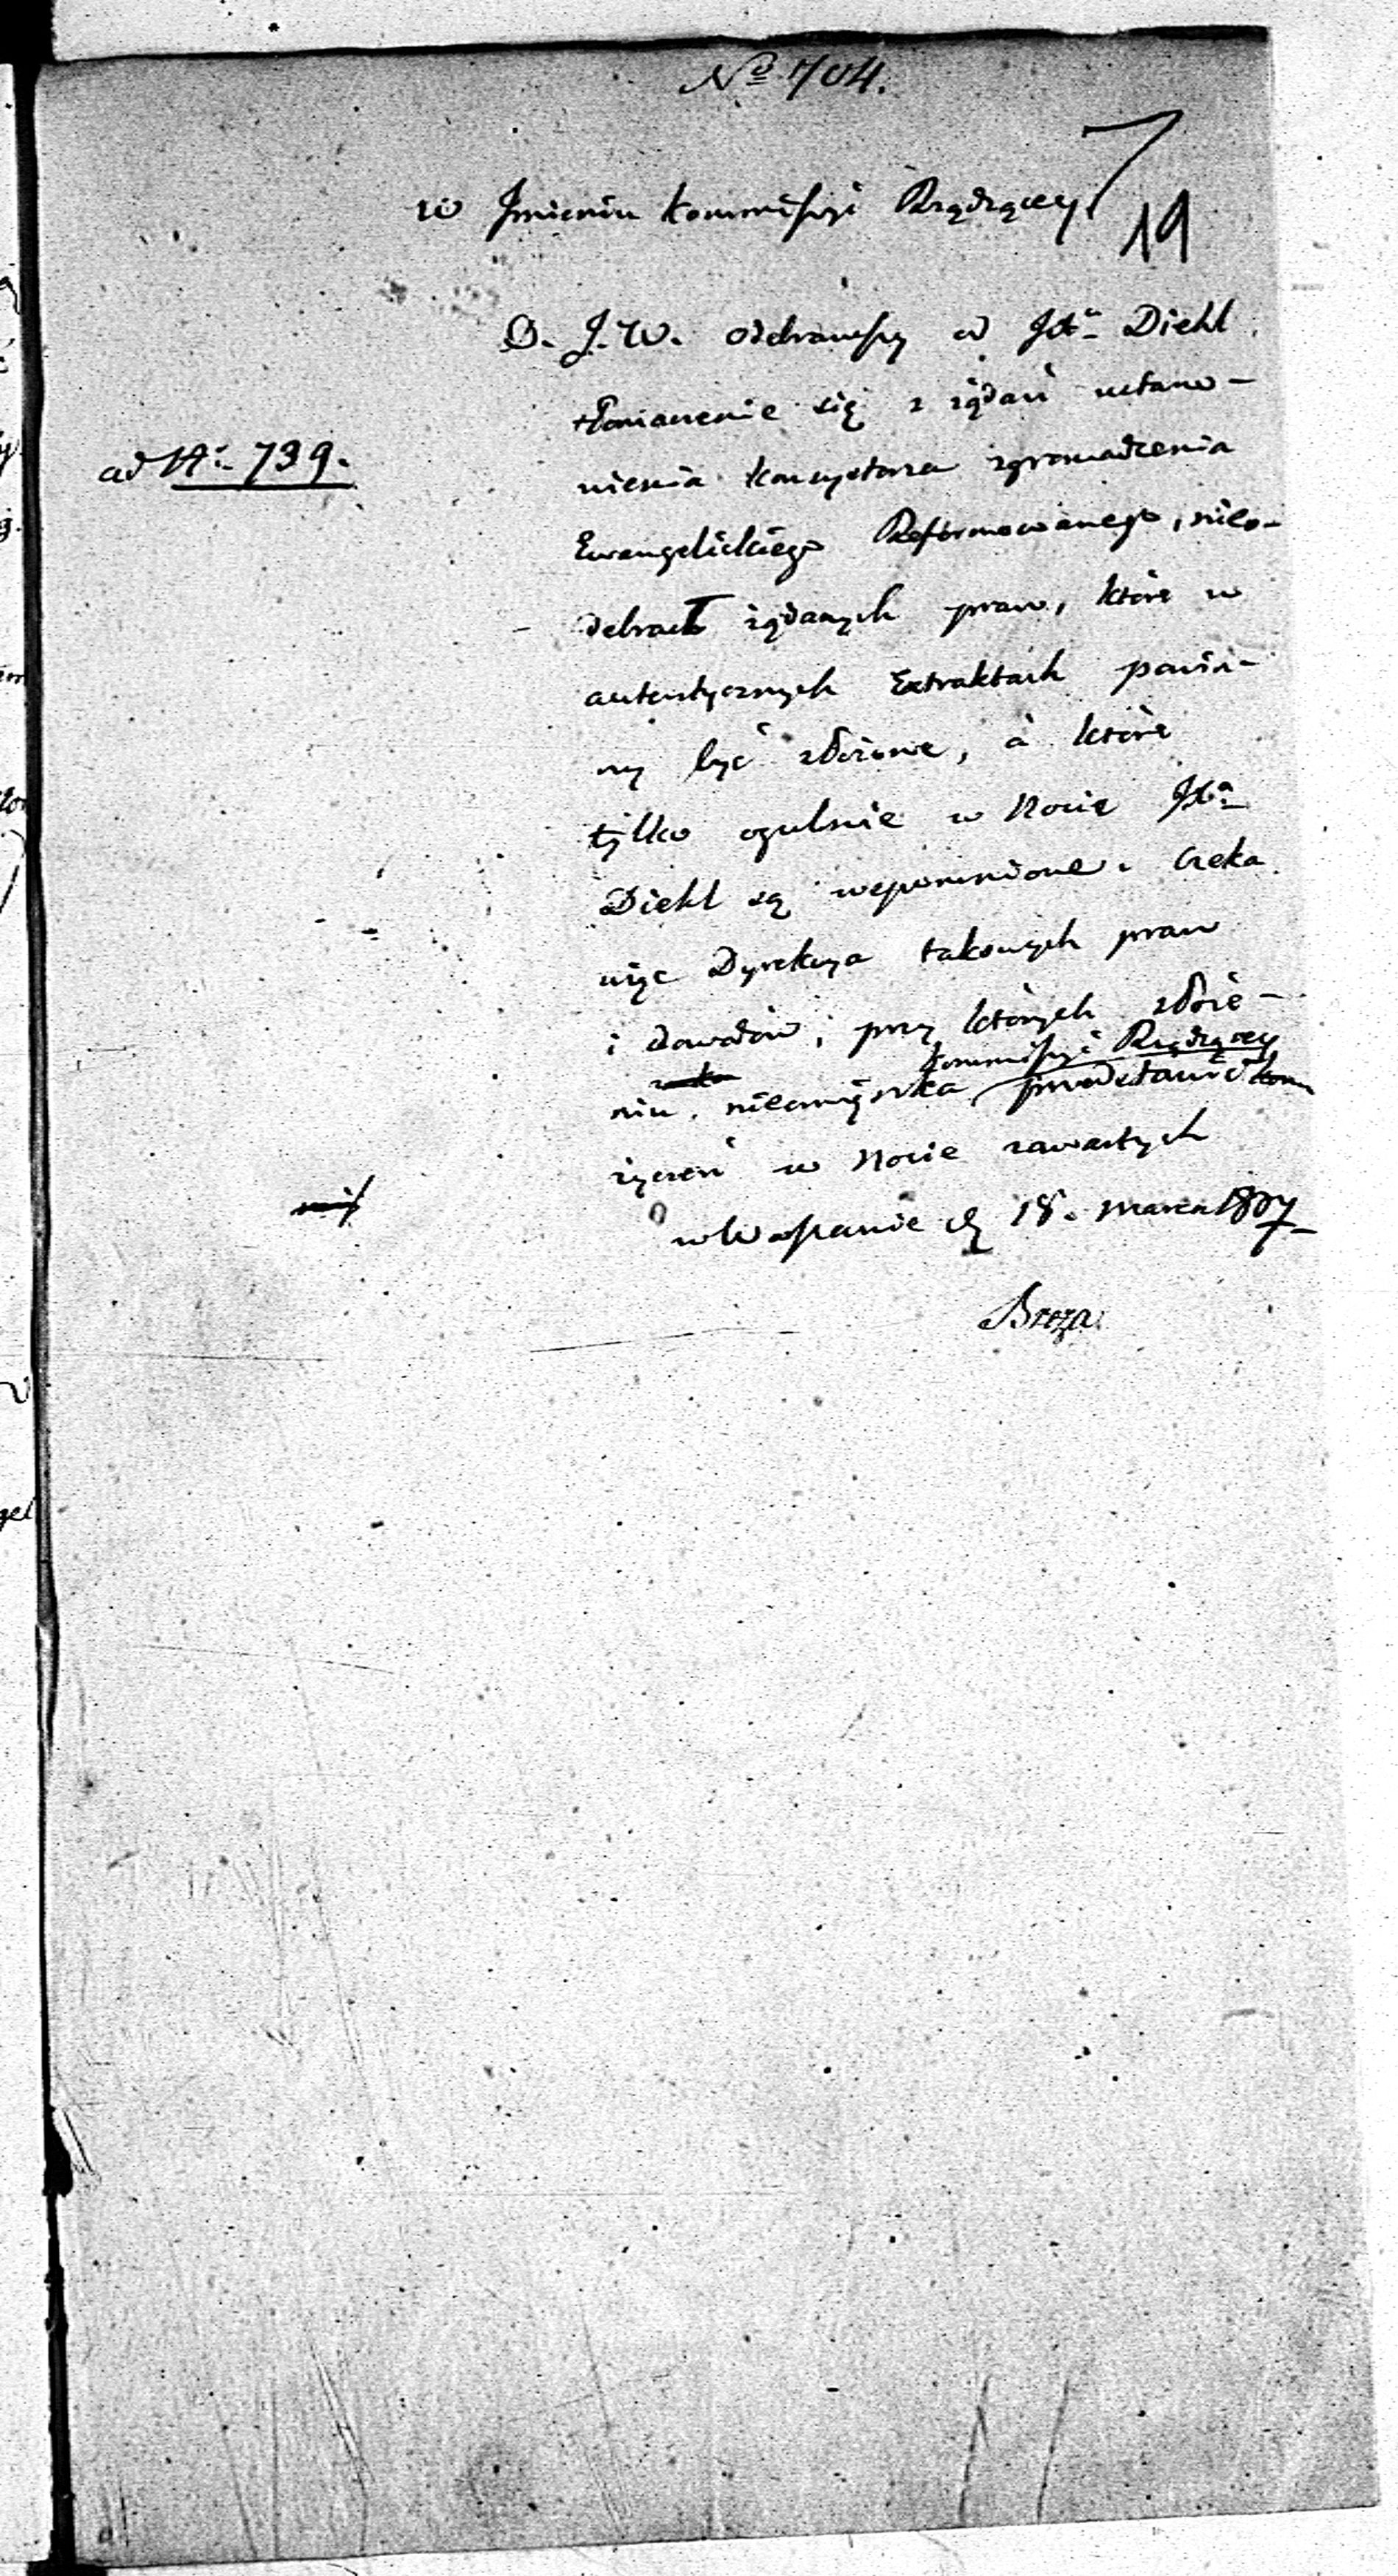 No 704.
19
w Jmieniu Kommissyi Rządzącey
D. J. W. Odebrawszy od JX. Diehl
ad N. 739.
tłomaczenie się z żądań ustano-
wienia Konsystorza zgromadzenia
Ewangelickiego Reformowanego, nieo-
debrał żądanych praw, które w
autentycznych Extraktach powin-
ny być złożone, à które
tylko ogulnie w Nocie JXa
Diehl są wspomnione. Czeka
więc Dyrekcya takowych praw
i dowodów, przy których złoże-
Kommissyi Rządzącey
niu, nieomięszka przedstawić
życzeń w Nocie zawartych
w Warszawie d. 18. Marca 1807
Breza.